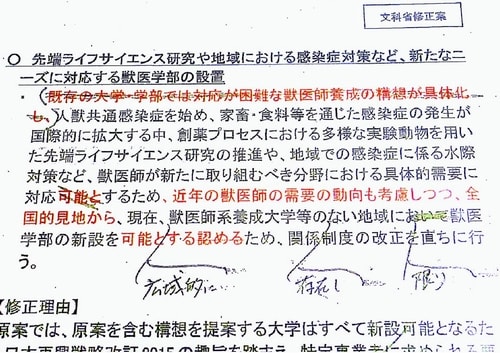 文科省修正案
○ 先端ライフサイエンス研究や地域における感染症対策など、新たなニ
ーズに対応する獣医学部の設置
・(既存の大学・学部では対応が困難な獣医師養成の構想が具体化
し、人獣共通感染症を始め、家畜・食料等を通じた感染症の発生が
国際的に拡大する中、創薬プロセスにおける多様な実験動物を用い
た先端ライフサイエンス研究の推進や、地域での感染症に係る水際
対策など、獣医師が新たに取り組むべき分野における具体的需要に
対応可能とするため、近年の獣医師の需要の動向も考慮しつつ、全
国的見地から、現在、獣医師系養成大学等のない地域において獣医
学部の新設を可能とする認めるため、関係制度の改正を直ちに行
う。
広域的に 存在し 限り
【修正理由】
原案では、原案を含む構想を提案する大学はすべて新設可能となるた